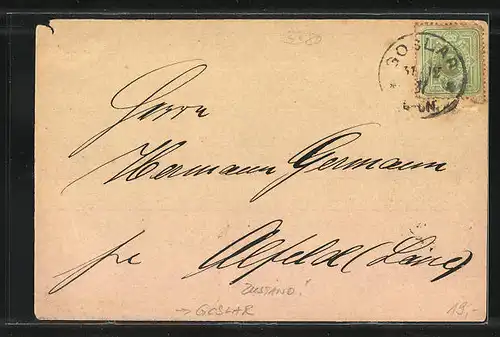 GOSLAR
31 12
4-5N.
Herrn
Hermann Germann
pr Alfeld (Leine)
ZUSTAND!
→ GOSLAR
19,-